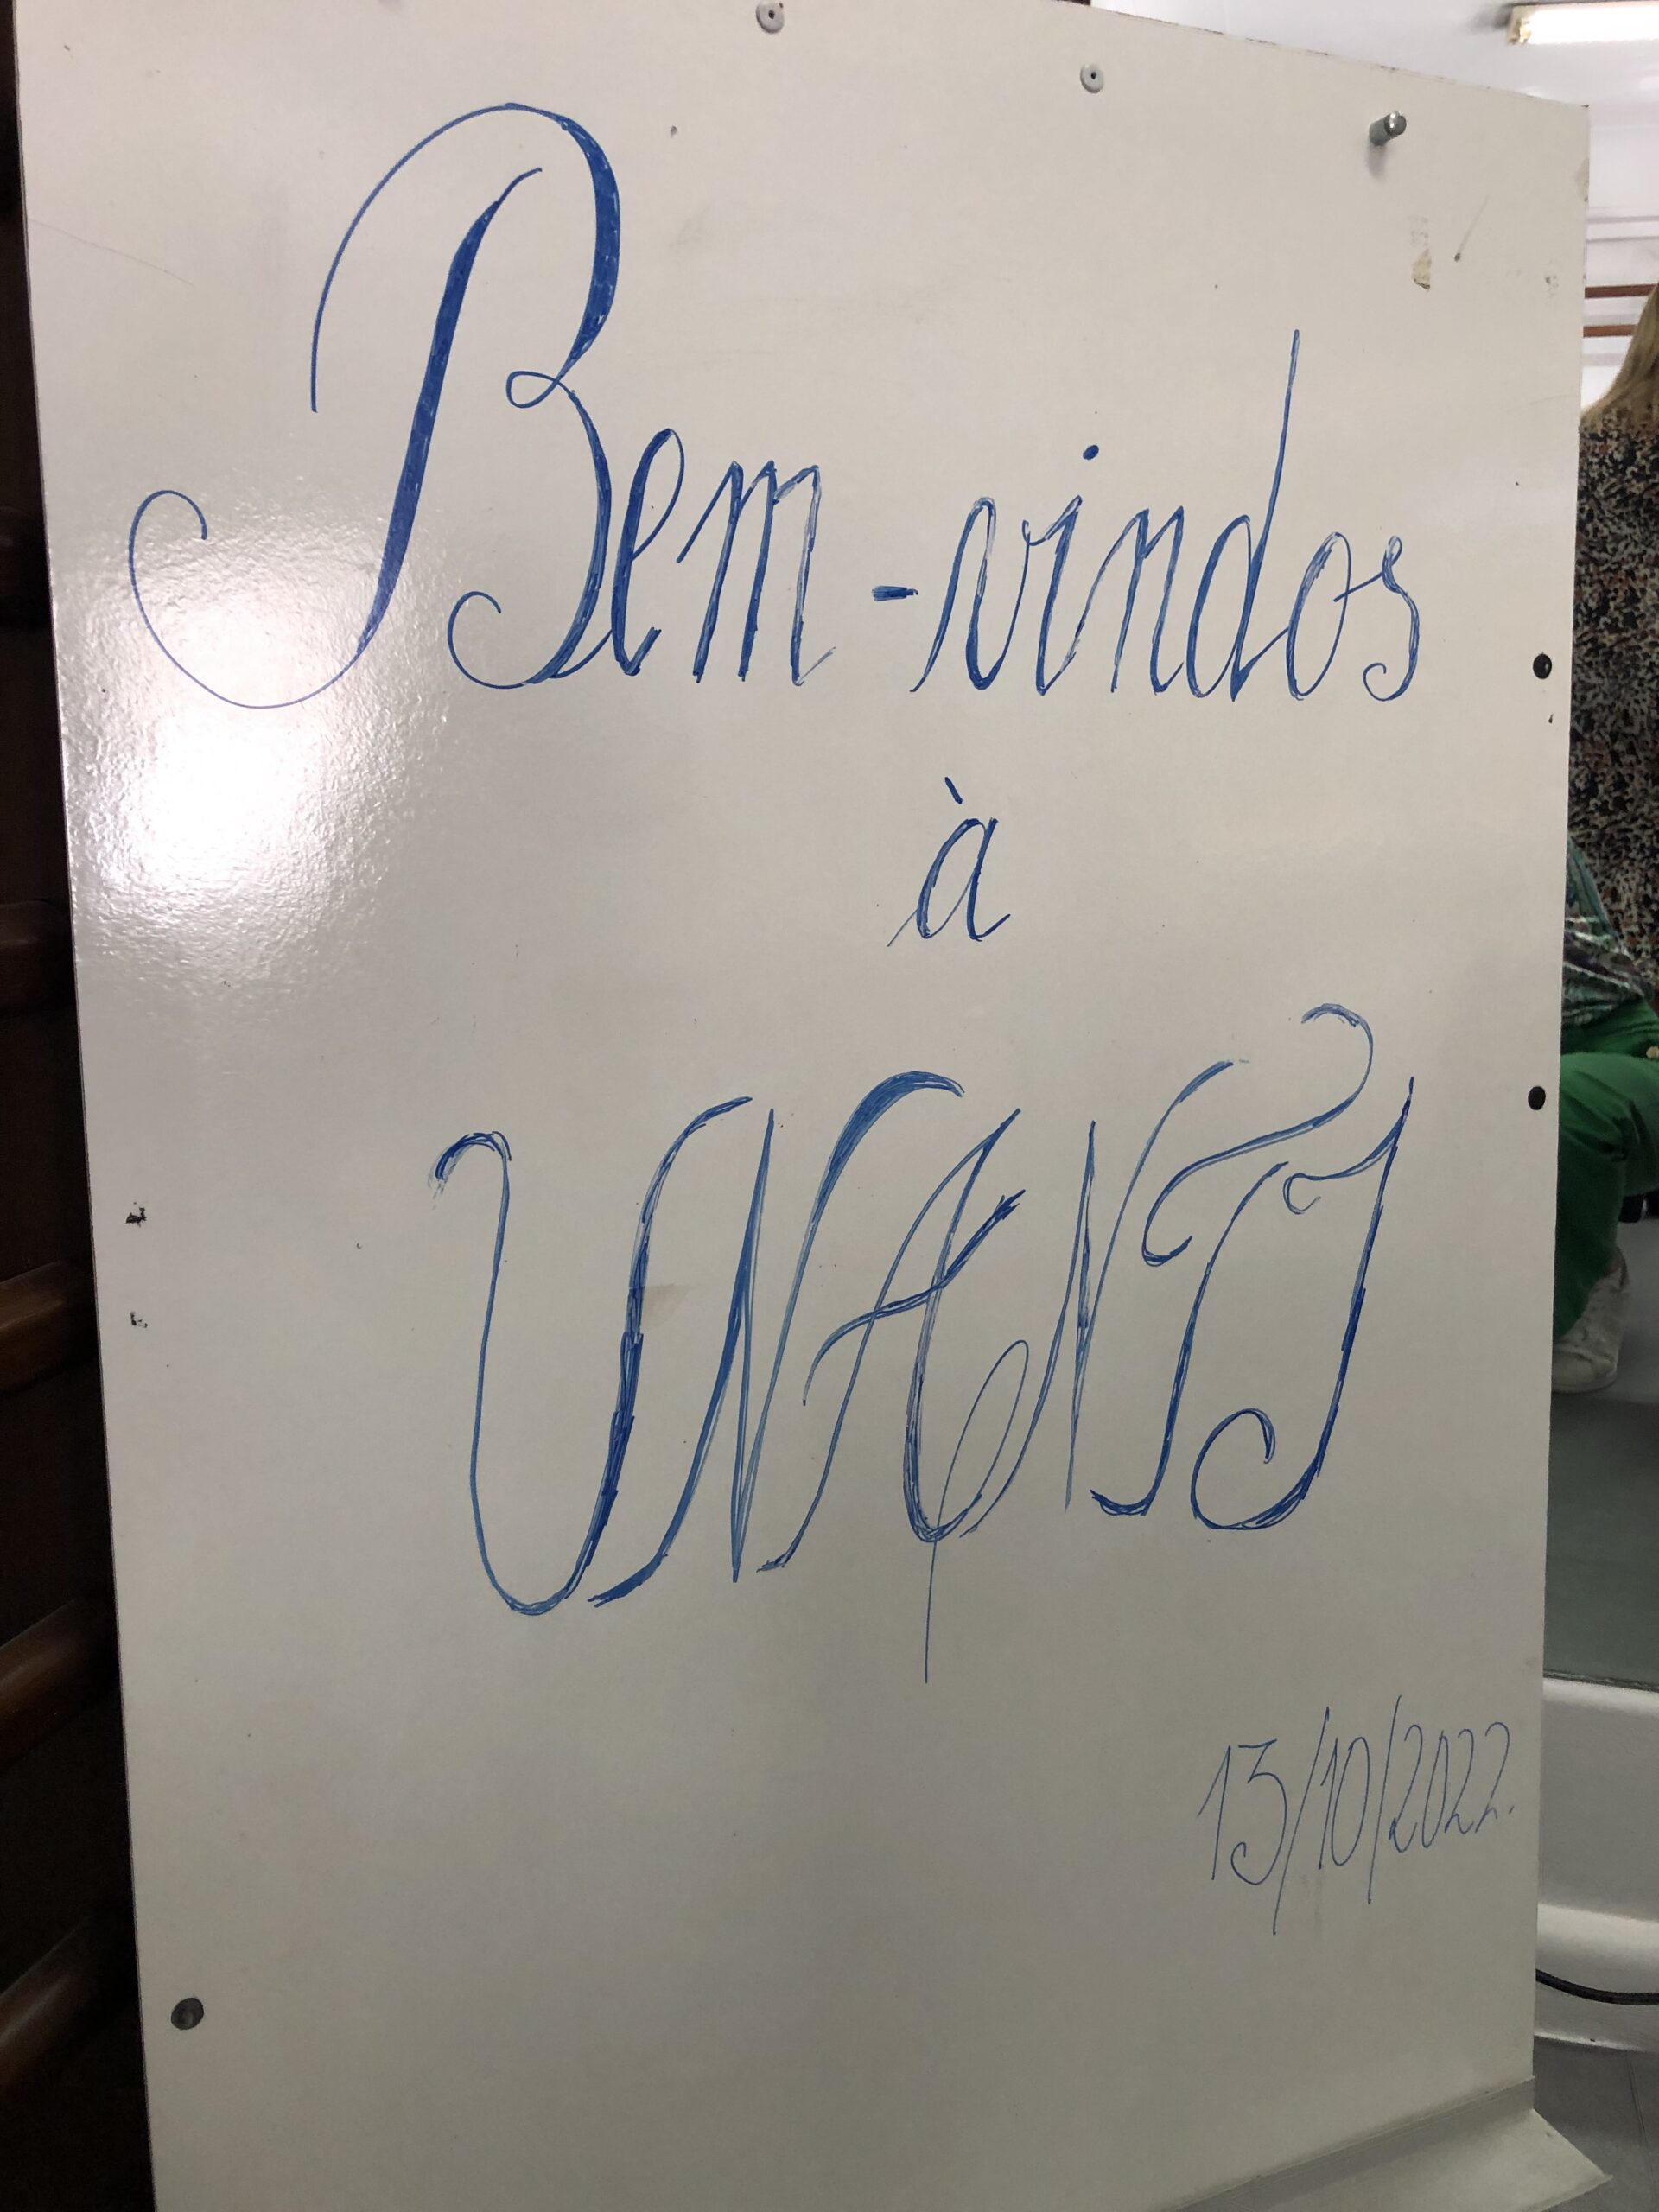 Bem-vindos
à
UNANTI
13/10/2022.